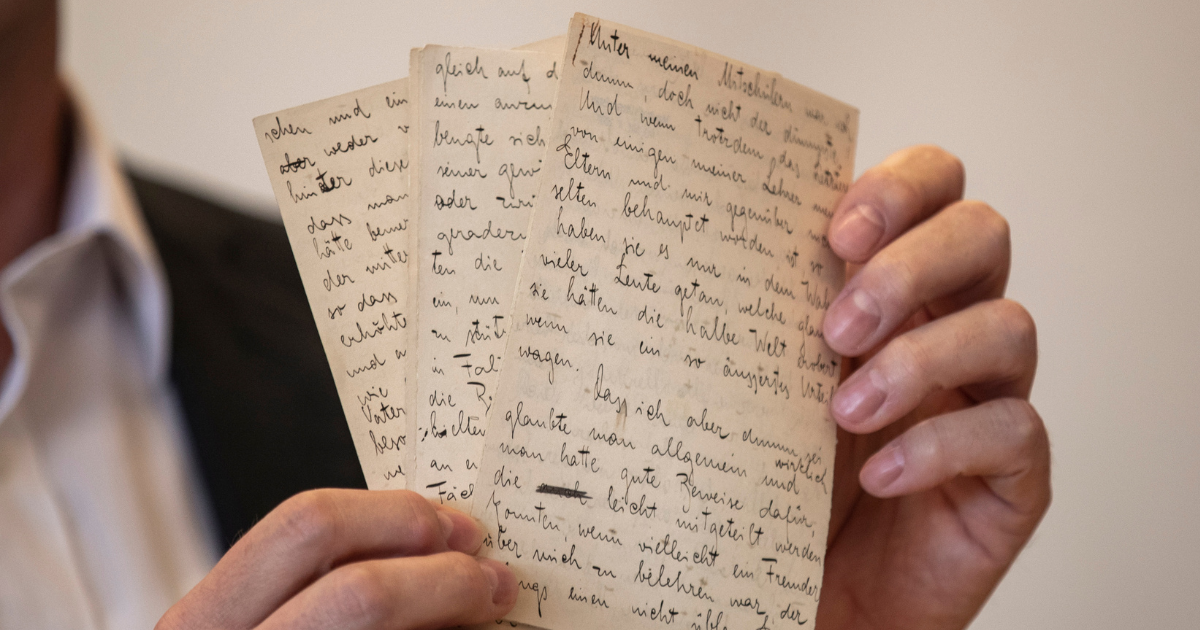 schen und ein
aber weder
hinter diese
dass man
hätte
der
so dass
erhöhte
und
wie
beso
gleich auf d
einen
beugte sich
seiner gew
oder
ten die
ein, um
zu stüt
in Fal
die
an
Fäch
Unter meinen Mitschülern war ich
dumm, doch nicht der dümmste.
Und wenn trotzdem das
von einigen meiner Lehrer
Eltern und mir gegenüber
selten behauptet worden ist so
haben sie es nur in dem Wah
vieler Leute getan, welche glau
sie hätten die halbe Welt erobert
wenn sie ein so äusserstes Urtei
wagen.
Dass ich aber dumm sei
glaubte man allgemein und wirklich
man hatte gute Beweise dafür,
die leicht mitgeteilt werden
konnten, wenn vielleicht ein Fremder
über mich zu belehren war, der
ings einen nicht übl